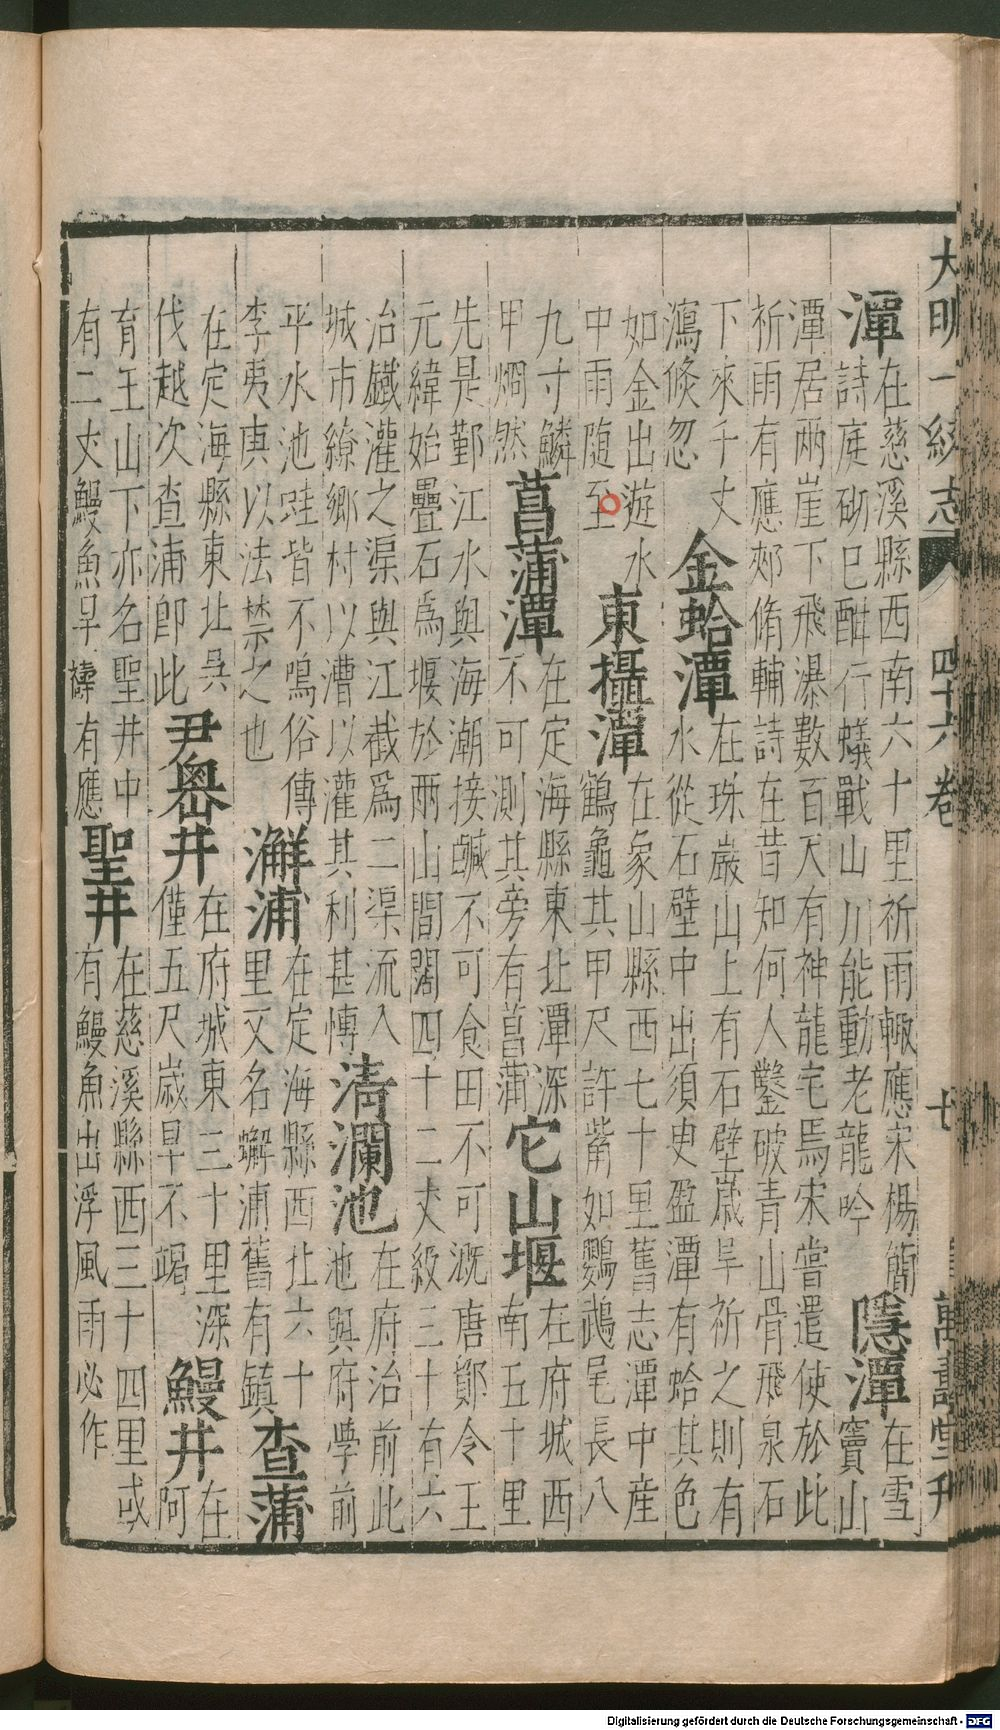 大明一統志 四十六卷 七 萬壽堂刊
潭
在慈溪縣西南六十里祈雨輙應宋楊簡
詩庭砌已酣行蟻戰山川能動老龍吟
隱潭
在雪
竇山
潭居兩崖下飛瀑數百丈有神龍宅焉宋嘗遣使於此
祈雨有應郟脩輔詩在昔知何人鑿破青山骨飛泉石
下來千丈
瀉倐忽
金蛤潭
在珠巖山上有石壁歲旱祈之則有
水從石壁中出須臾盈潭有蛤其色
如金出遊水
中雨随至
東攝潭
在象山縣西七十里舊志潭中産
鶴龜其甲尺許觜如鸚鵡尾長八
九寸鱗
甲燗然
菖蒲潭
在定海縣東北潭深
不可測其旁有菖蒲
它山堰
在府城西
南五十里
先是鄞江水與海潮接鹹不可食田不可溉唐鄮令王
元緯始疊石爲堰於兩山間闊四十二丈級三十有六
冶鐵灌之渠與江截爲二渠流入
城市繚鄉村以漕以灌其利甚愽
清瀾池
在府治前此
池與府學前
平水池蛙皆不鳴俗傳
李夷庚以法禁之也
澥浦
在定海縣西北六十
里又名蠏浦舊有鎮
查蒲
在定海縣東北吳
伐越次查浦即此
尹嶴井
在府城東三十里深
僅五尺歲旱不竭
鰻井
在
阿
育王山下亦名聖井中
有二大鰻魚旱禱有應
聖井
在慈溪縣西三十四里或
有鰻魚出浮風雨必作
Digitalisierung gefördert durch die Deutsche Forschungsgemeinschaft - DFG